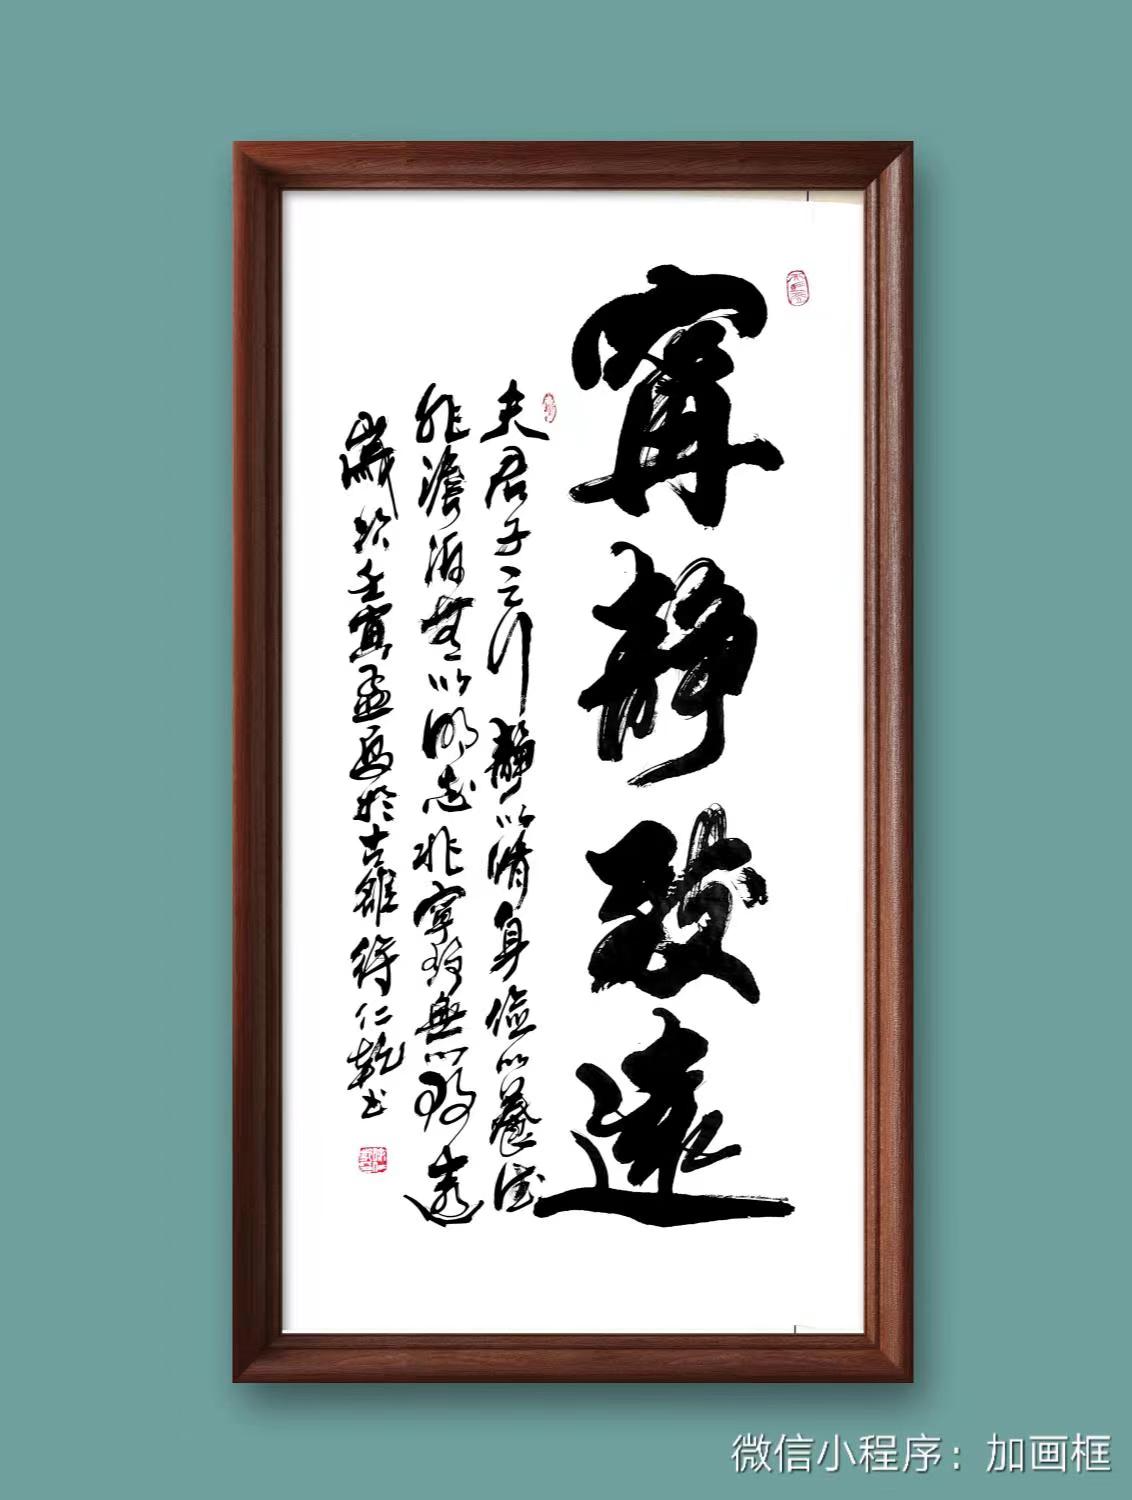 寧靜致遠
夫君子之行靜以脩身儉以養德
非澹泊無以明志非寧致無以致遠
歲於壬寅孟夏於古雒符仁乾书
微信小程序：加画框